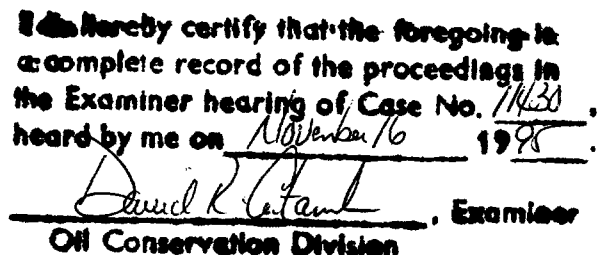 I do hereby certify that the foregoing is
a complete record of the proceedings in
the Examiner hearing of Case No. 11430,
heard by me on November 16 1995.
David R. Catanach, Examiner
Oil Conservation Division